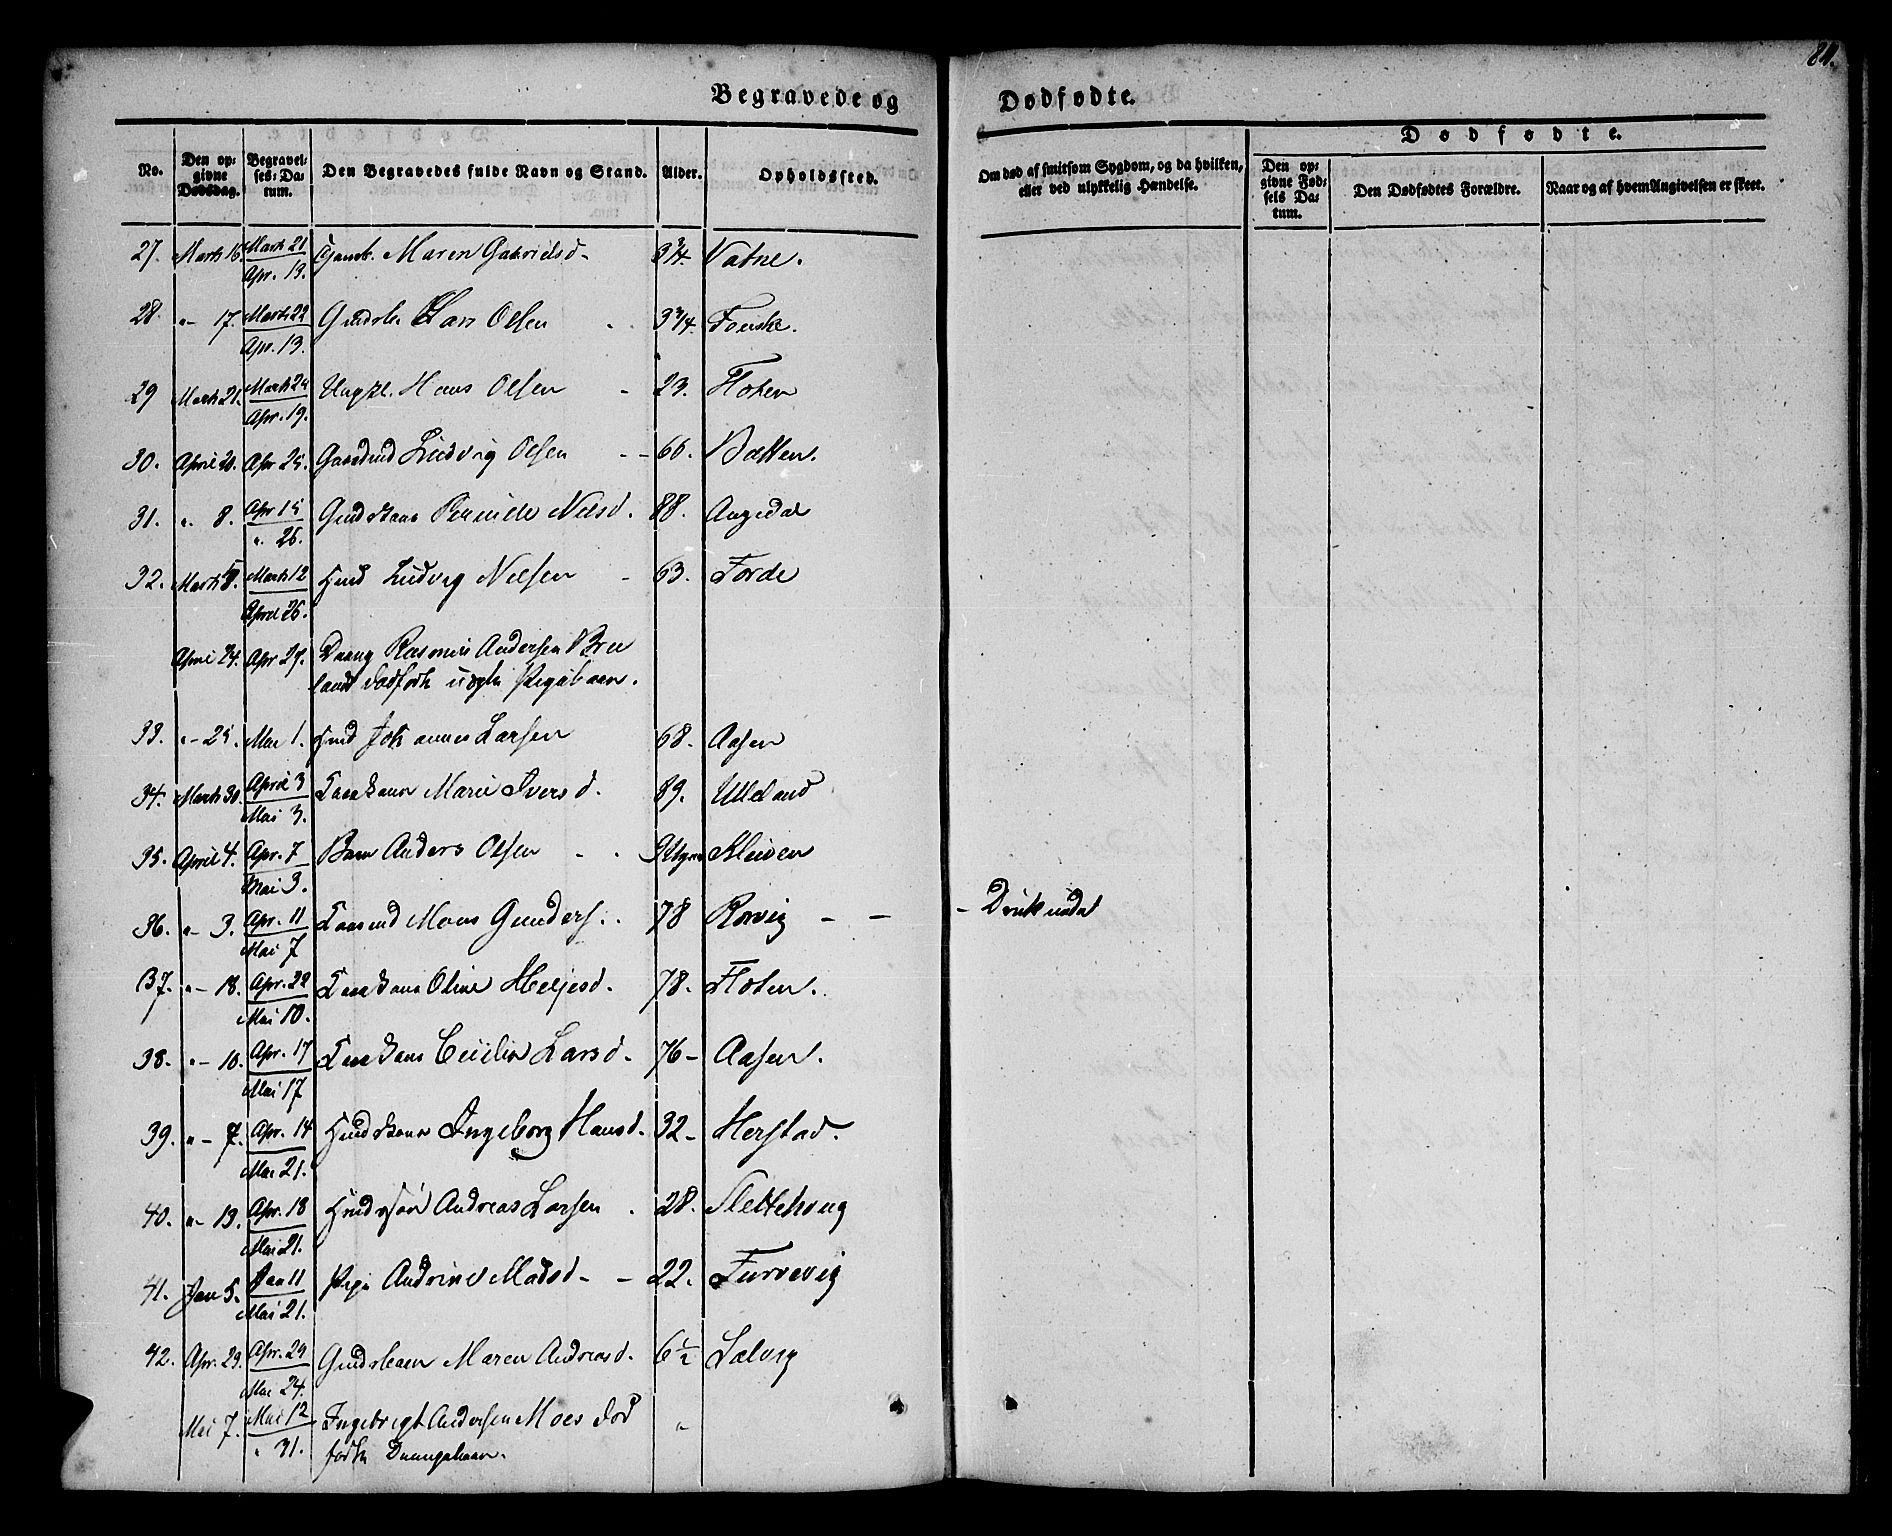 84.
Begravede og Dødfødte.
Dødfødte.
No. Den opgivne Dødsdag. Begravelses-Datum. Den Begravedes fulde Navn og Stand. Alder. Opholdssted. Om død af smitsom Sygdom, og da hvilken, eller ved ulykkelig Hændelse. Den opgivne Fødsels Datum. Den Dødfødtes Forældre. Naar og af hvem Angivelsen er skeet.
27. Marts 16. Marts 21 Apr. 13. Maren Gabrielsd - 3/4. Vatne.
28. " - 17. Marts 22 Apr. 13. Lars Olsen 3 3/4. Fenske.
29 Marts 21. Marts 24 Apr. 19. Ungkl. Hans Olsen - 23. Floten
30. April 20. Apr 25. Ludvig Olsen - - 66. Batten.
31. " 8. Apr 15 " 26. Pernille Nilsd. 88. Angedal
32. Marts 8. Marts 12 April 26. Hmd Ludvig Nilsen - 63. Førde
April 24. Apr 29. Rasmus Andersen Bre
land dødfødt Pigebarn.
33. " - 25. Mai 1. Hmd Johannes Larsen 68. Aasen
34. Marts 30. April 3 Mai 3. Marie Iversd. 89. Ulleland
35. April 4. Apr. 7 Mai 3. Barn Anders Olsen - . Kleiven
36. " - 3. Apr. 11 Mai 7 Mons Gunders. . 78 Rørvig - - - Druknedet
37. " - 18. Apr. 22 Mai 10. Oline Heljesd. 78. Floten.
38. " - 10. Apr. 17 Mai 17 Larsd. 76 - Aasen.
39. " - 7. Apr. 14 Mai 21. Ingeborg Hansd. 32 - Herstad.
40. " - 13. Apr. 18 Mai 21. Andreas Larsen . 28. Slettehoug
41. Jan 5. Jan 11 Mai 21. Pige Andrine Madsd - - 22. Furevig
42. Apr. 23. Apr. 29 Mai 24. Maren Andreasd. 6 1/2 Solvig
Mai 7. Mai 12 " 31. Ingebrigt Andersen Moes død "
født Drengebarn.